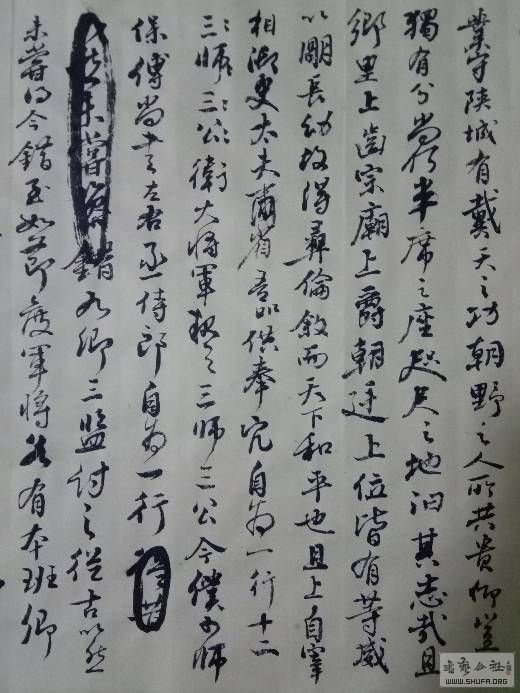 業守陕城有戴天之功朝野之人所共貴仰豈
獨有分尚何半席之座咫尺之地汩其志哉且
鄉里上齒宗廟上爵朝廷上位皆有等威
以明長幼故得彝倫敘而天下和平也且上自宰
相御史大夫兩省五品供奉官自為一行十二
三師三公衛大將軍次之三師三公令僕少師
保傅尚書左右丞侍郎自為一行
未嘗參錯九卿三監對之從古以然
未嘗參錯至如節度軍將各有本班卿
書藝公社
WWW.SHUFA.ORG